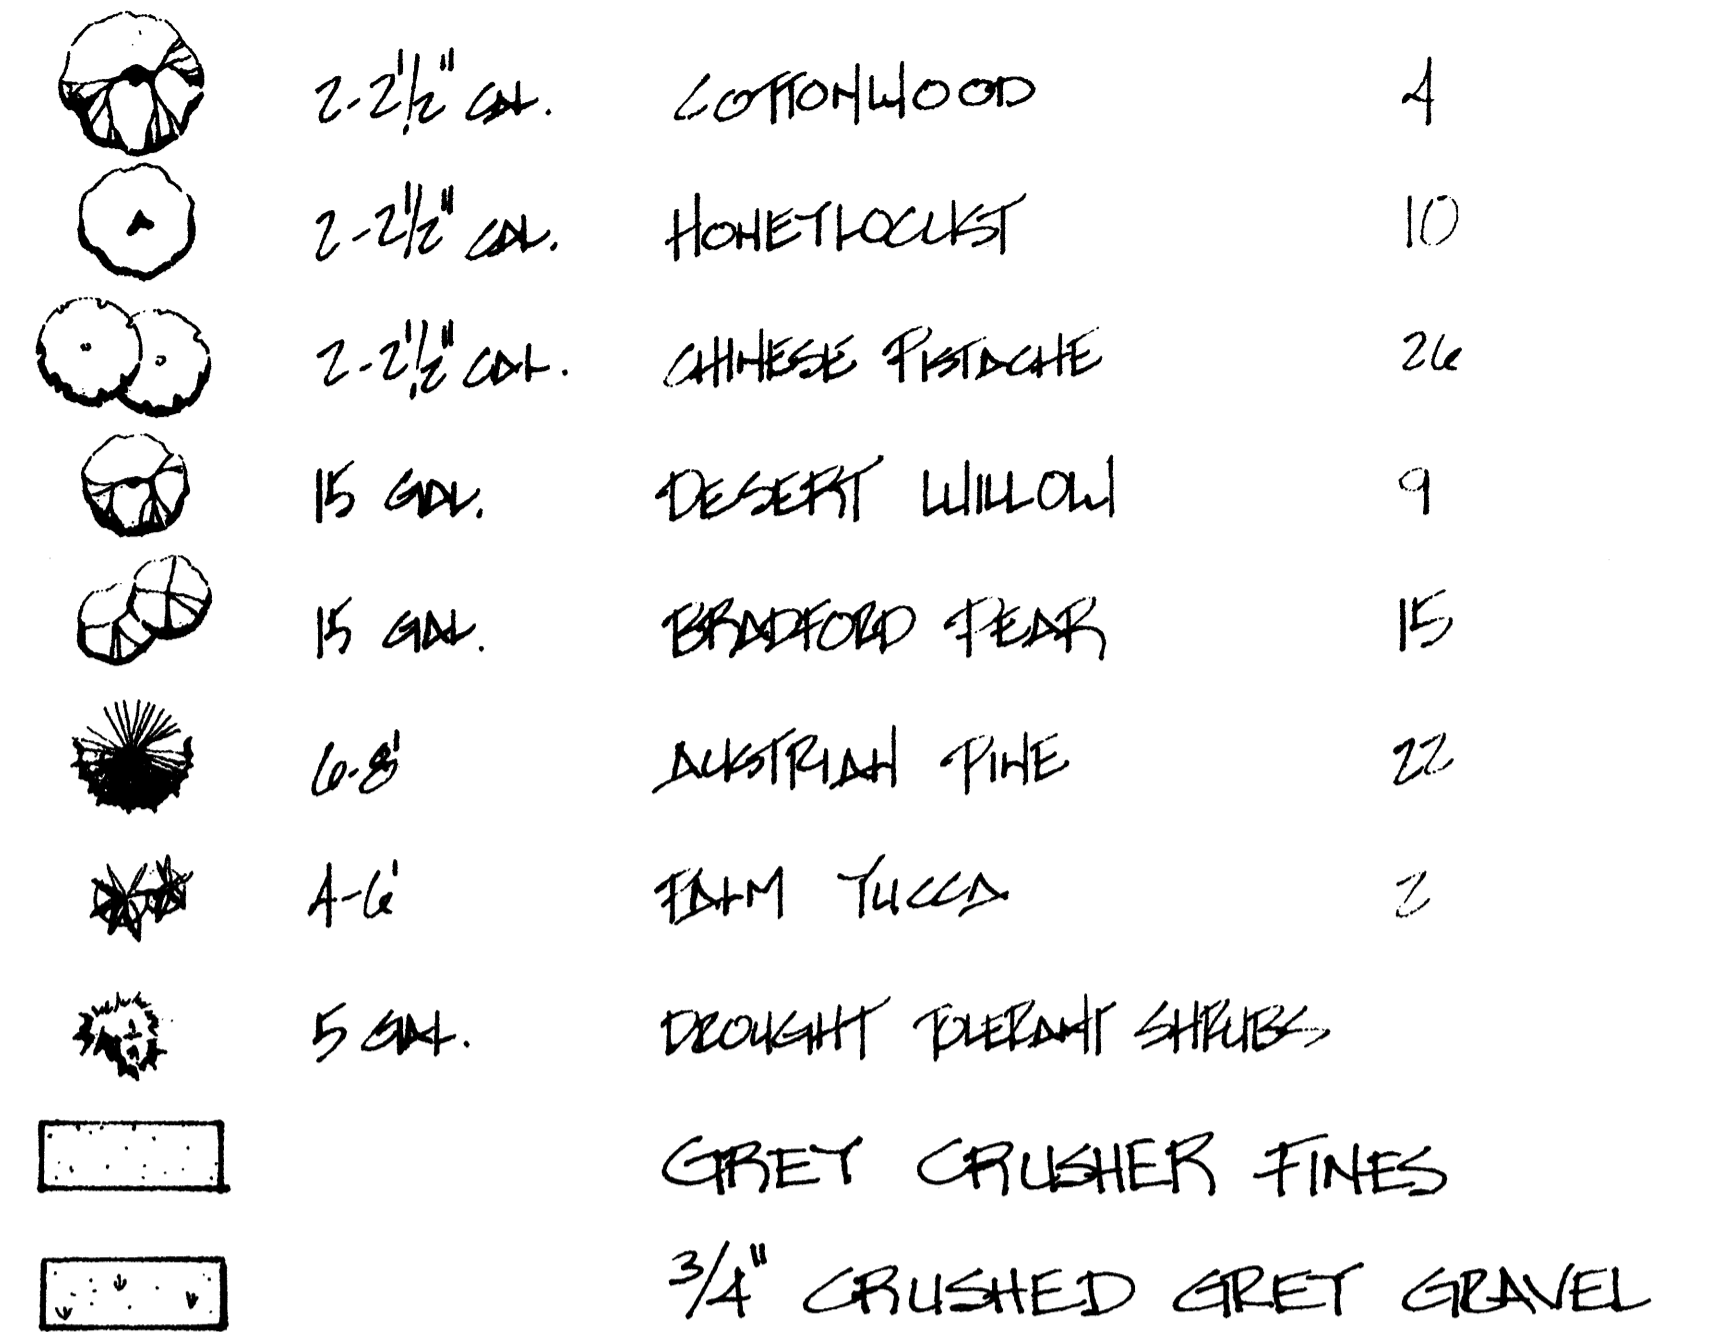 2-2 1/2" CAL. COTTONWOOD 4
2-2 1/2" CAL. HONEYLOCUST 10
2-2 1/2" CAL. CHINESE PISTACHE 26
15 GAL. DESERT WILLOW 9
15 GAL. BRADFORD PEAR 15
6-8' AUSTRIAN PINE 22
4-6' PALM YUCCA 2
5 GAL. DROUGHT TOLERANT SHRUBS
GREY CRUSHER FINES
3/4" CRUSHED GREY GRAVEL